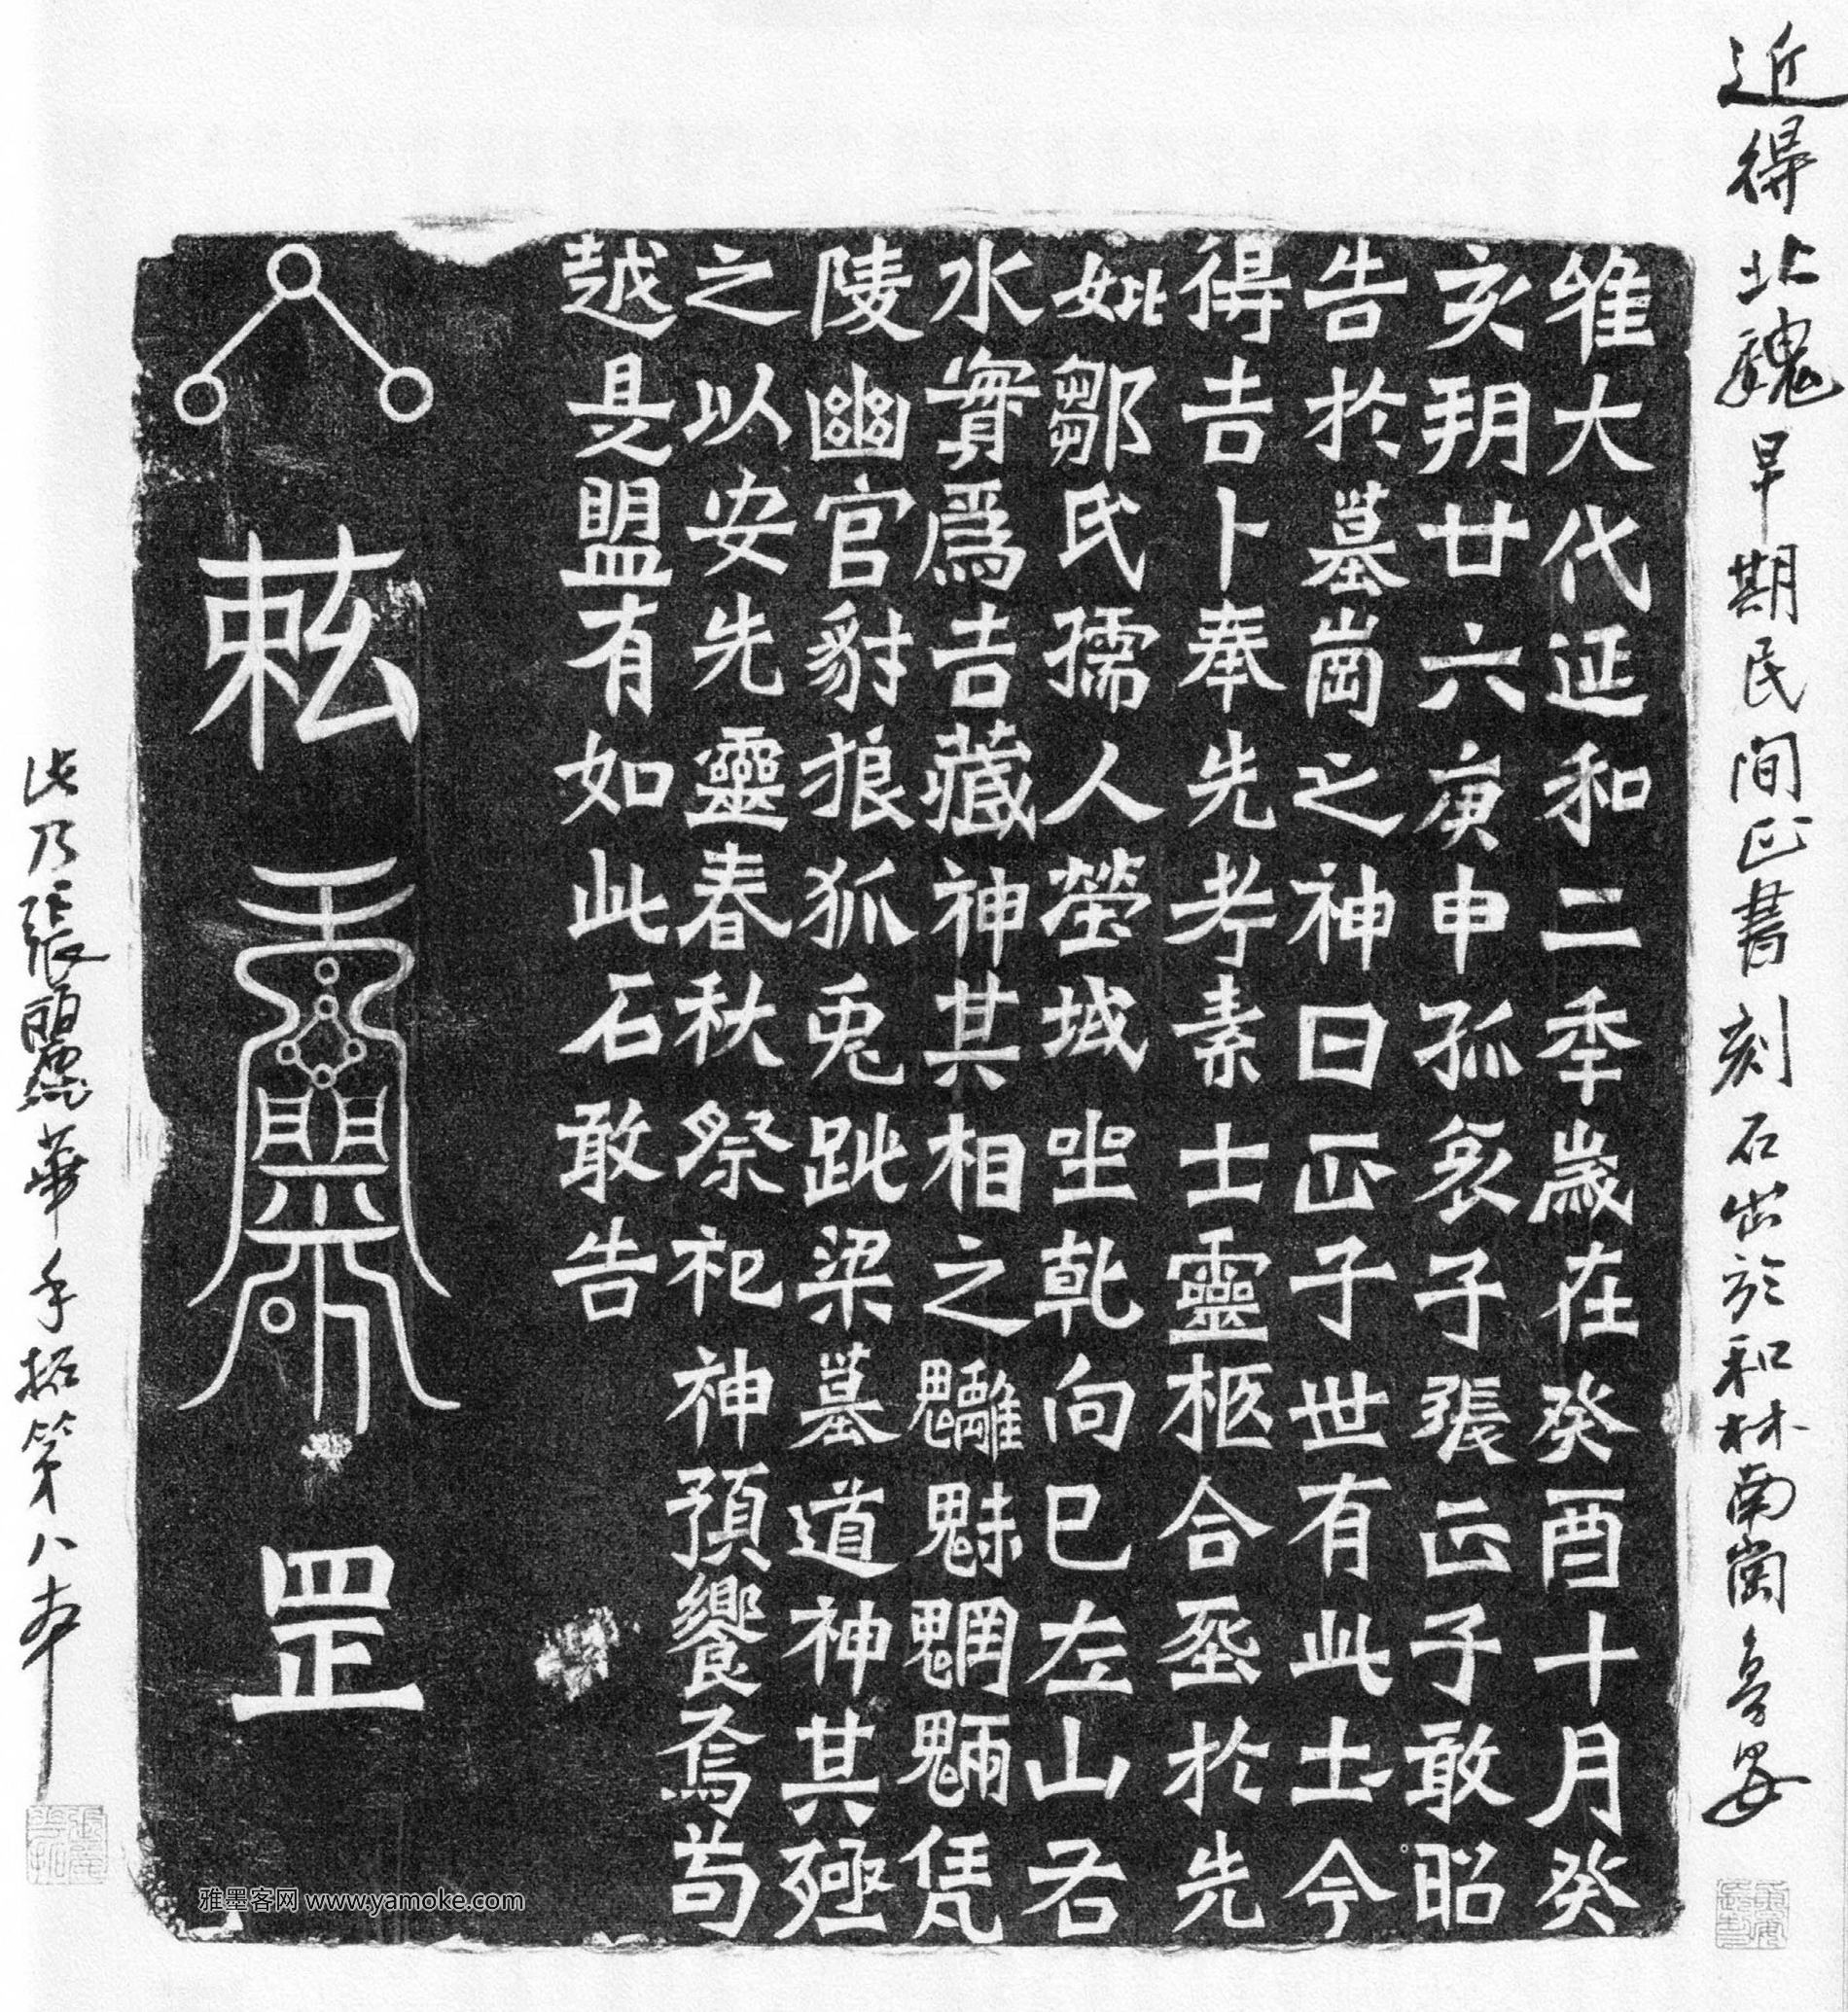 近得北魏早期民間正書刻石出於和林南崗
維大代延和二秊歲在癸酉十月癸
亥朔廿六庚申孤哀子張正子敢昭
告於墓崗之神曰正子世有此土今
得吉卜奉先考素士靈柩合於先
妣鄒氏孺人塋域坐乾向巳左山右
水實爲吉藏神其相之魑魅魍魎凭
陵幽官豺狼狐兔跳梁墓道神其殛
之以安先靈春秋祭祀神預饗焉苟
越是盟有如此石敢告
敕
罡
此乃張麗華手拓第八本
雅墨客网 www.yamoke.com